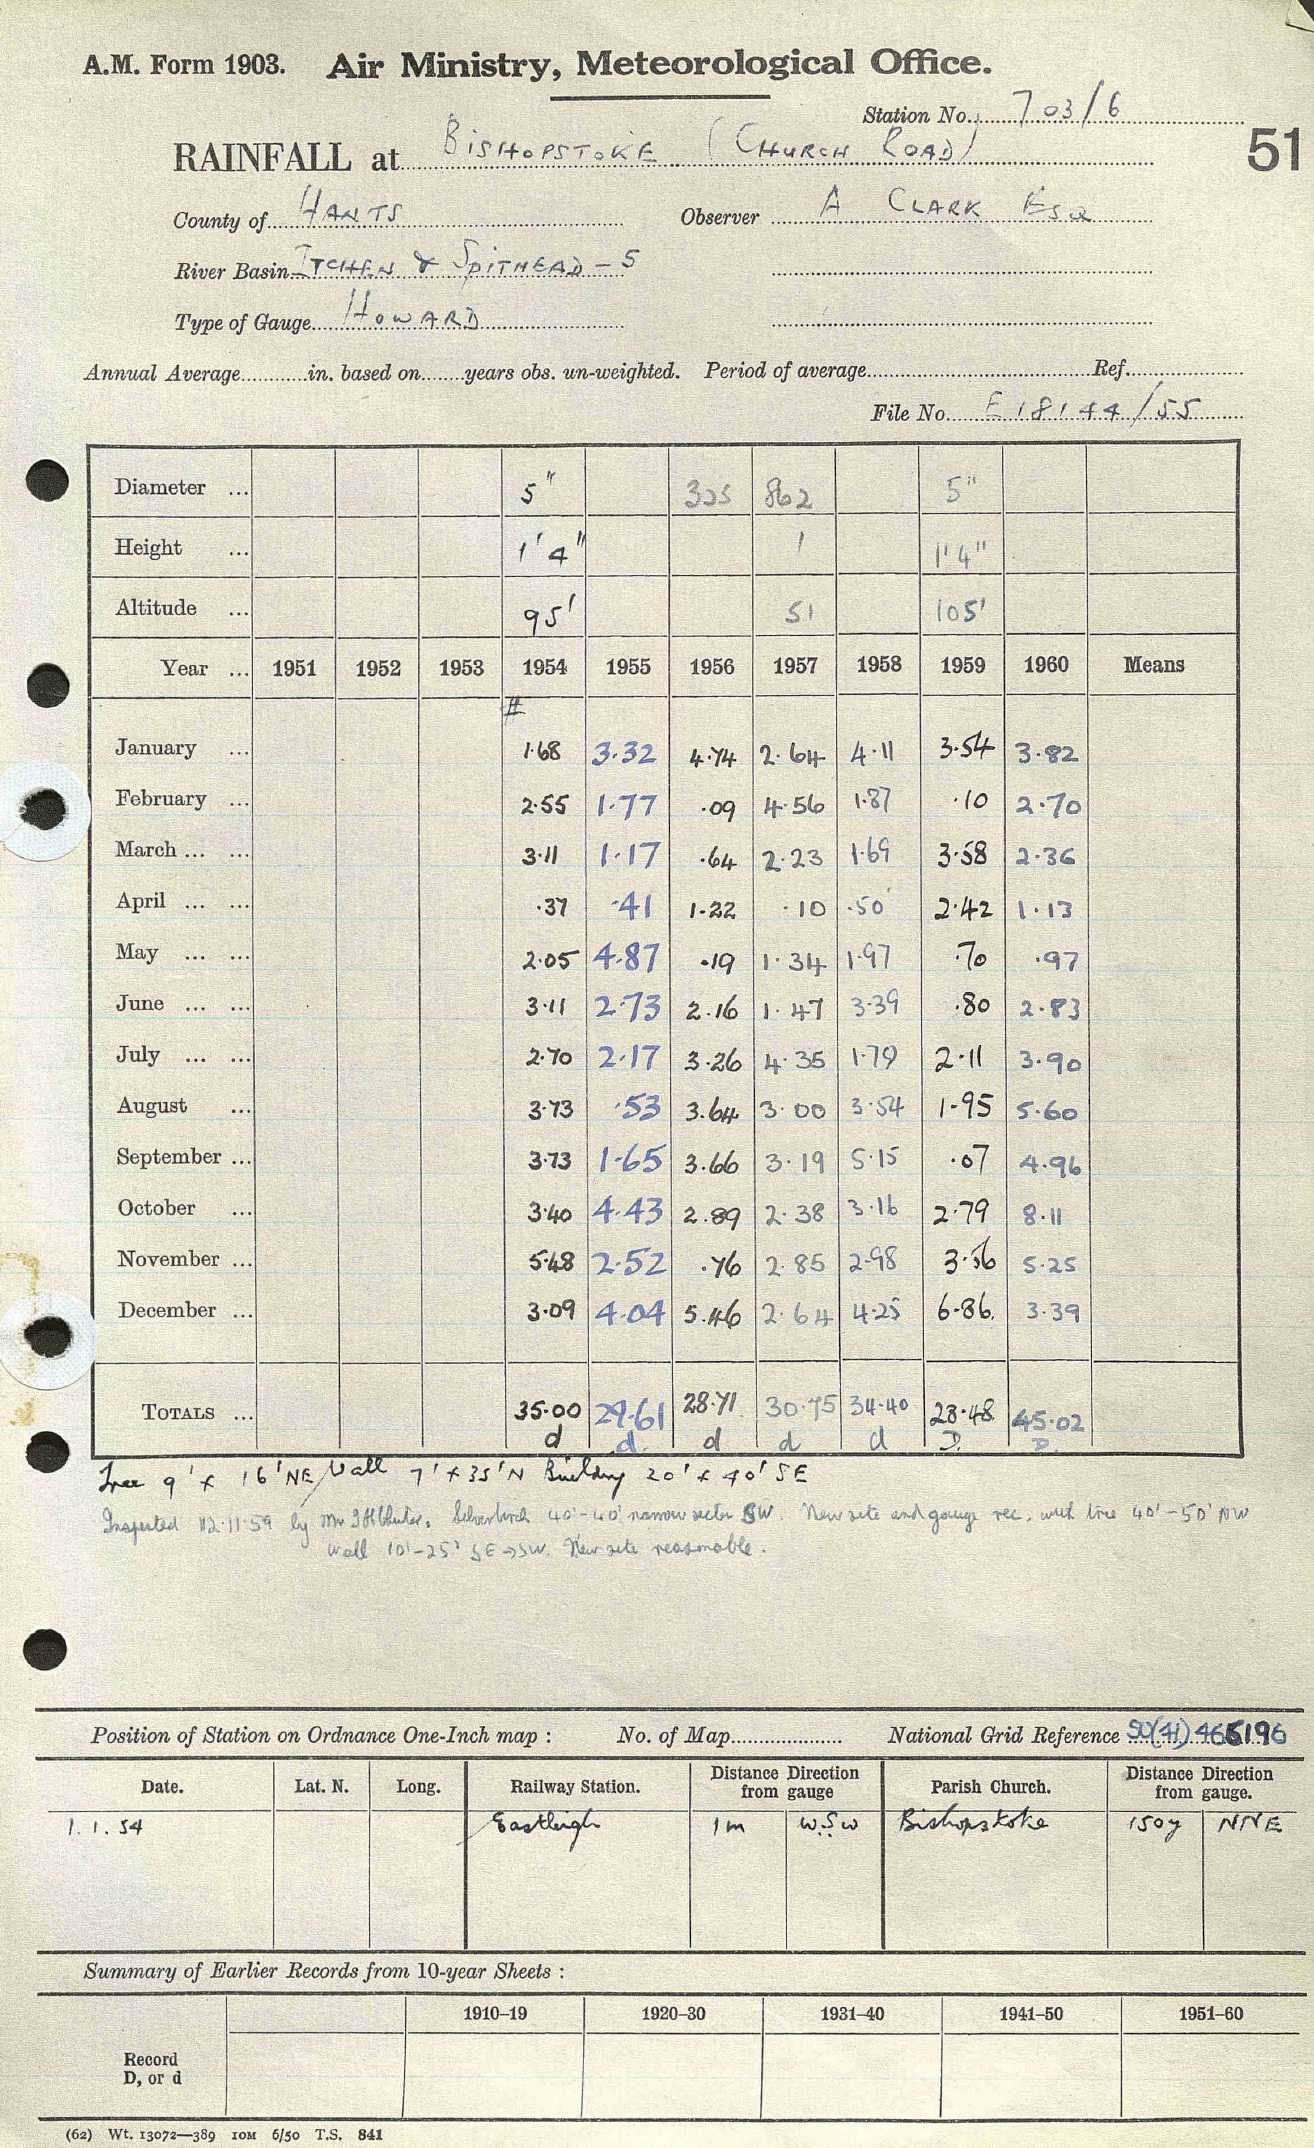 A.M. Form 1903. Air Ministry, Meteorological Office.
Station No. 703/6
RAINFALL at BISHOPSTOKE (CHURCH ROAD) 51
County of HANTS Observer A CLARK ESQ
River Basin ITCHEN & SPITHEAD - 5
Type of Gauge HOWARD
Annual Average in. based on years obs. un-weighted. Period of average Ref.
File No. E18144/55
Diameter ... 5" 325 862 5"
Height ... 1'4" 1 1'4"
Altitude ... 95' 51 105'
Year ... 1951 1952 1953 1954 1955 1956 1957 1958 1959 1960 Means
#
January ... 1.68 3.32 4.74 2.64 4.11 3.54 3.82
February ... 2.55 1.77 .09 4.56 1.87 .10 2.70
March ... ... 3.11 1.17 .64 2.23 1.69 3.58 2.36
April ... ... .37 .41 1.22 .10 .50 2.42 1.13
May ... ... 2.05 4.87 .19 1.34 1.97 .70 .97
June ... ... 3.11 2.73 2.16 1.47 3.39 .80 2.83
July ... ... 2.70 2.17 3.26 4.35 1.79 2.11 3.90
August ... 3.73 .53 3.64 3.00 3.54 1.95 5.60
September ... 3.73 1.65 3.66 3.19 5.15 .07 4.96
October ... 3.40 4.43 2.89 2.38 3.16 2.79 8.11
November ... 5.48 2.52 .76 2.85 2.98 3.56 5.25
December ... 3.09 4.04 5.46 2.64 4.25 6.86 3.39
TOTALS ... 35.00 29.61 28.71 30.75 34.40 28.48 45.02
d d. d d d D. D.
Tree 9' x 16' NE/Wall 7' x 35' N Building 20' x 40' SE
Inspected 12.11.59 by Mr Silverbirch 40'-40' narrow sector SW. New site and gauge rec. with tree 40'-50' NW
wall 10'-25' SE→SW. New site reasonable.
Position of Station on Ordnance One-Inch map : No. of Map National Grid Reference SU(41) 465196
Date. Lat. N. Long. Railway Station. Distance Direction from gauge Parish Church. Distance Direction from gauge.
1.1.54 Eastleigh 1m W.S.W Bishopstoke 150y NNE
Summary of Earlier Records from 10-year Sheets :
1910–19 1920–30 1931–40 1941–50 1951–60
Record
D, or d
(62) Wt. 13072—389 10M 6/50 T.S. 841